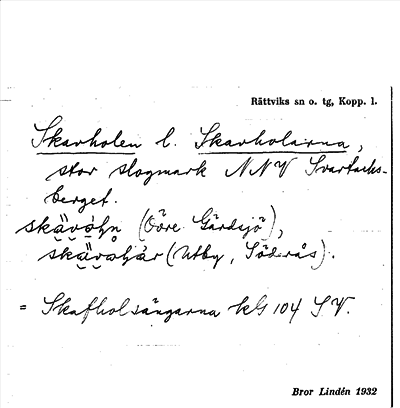 Rättviks sn o. tg, Kopp. l.
Skavholen l. Skavholarna,
stor slogmark NNV Svartacks-
berget.
(Övre Gärdsjö),
(Utby, Söderås).
= Skafholsängarna kG 104 SV.
Bror Lindén 1932